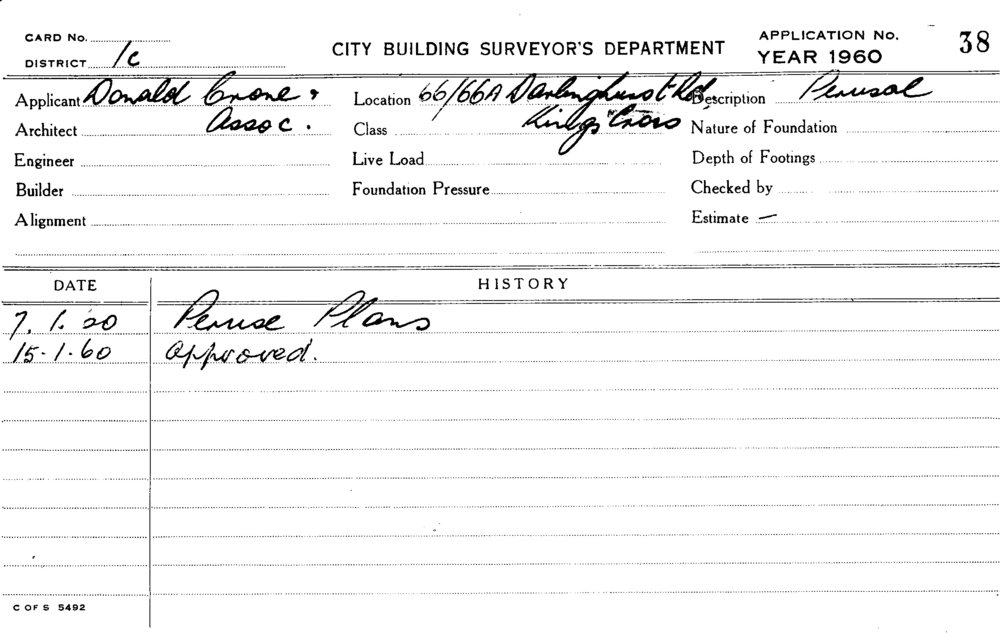 CARD No.
DISTRICT 1c
CITY BUILDING SURVEYOR'S DEPARTMENT
APPLICATION No. 38
YEAR 1960
Applicant Donald Crone & Location 66/66A Darlinghurst Rd. Description Perusal
Architect Assoc. Class Kings Cross Nature of Foundation
Engineer Live Load Depth of Footings
Builder Foundation Pressure Checked by
Alignment Estimate —
DATE HISTORY
7. 1. 60 Peruse Plans
15-1-60 Approved.
C OF S 5492